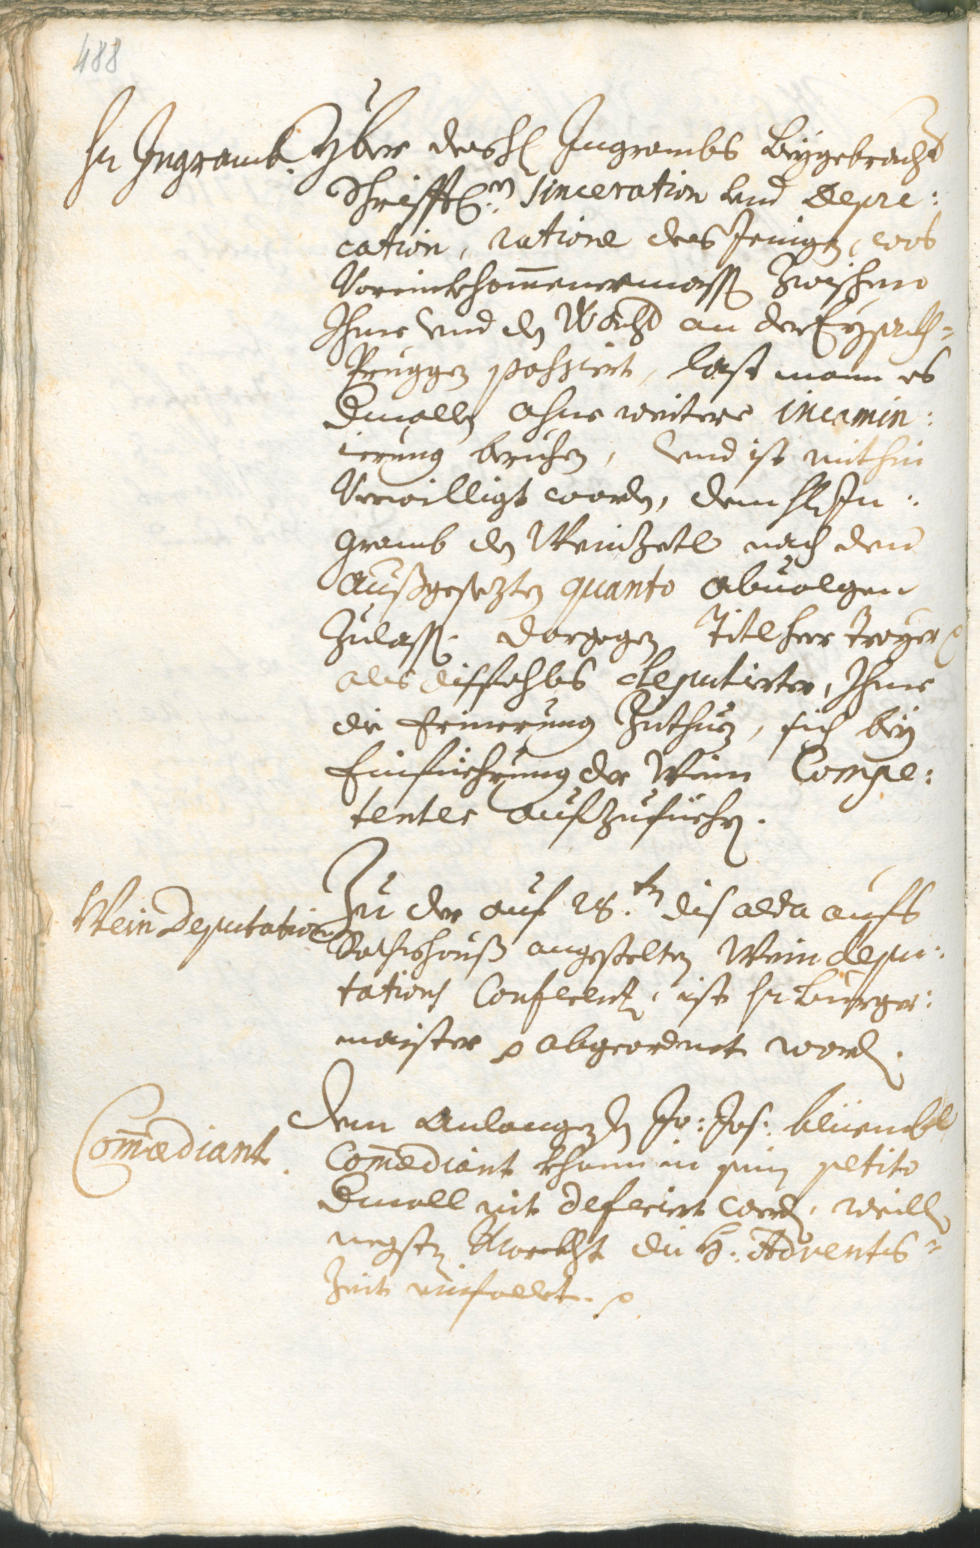 488
Hr Ingramb.
Yber des H Ingrambs beygebracht
Schrifft: sinceration und depre:
cation, ratione des Jenigen, was
Voreinkhomenermassen zwischen
Ihme und der Wacht an der Eysach=
Pruggen passiert, last mann es
dmallen ohne weitere incamin:
ierung beruhen, und ist mithin
Verwilligt worden, dem H In:
gramb den Weinzetl nach dem
außgesezten quanto abuolgen
Zulassen. dargegen Titl herr Troyer
als dissfahls deputierter, Ihme
die Erinerung Zuthuen, sich bey
Einfüehrung der Wein Compe:
tenter aufzufüehren.
Wein Deputation
Zu der auf 28.ten dis alda aufs
Rathshauß angestelten Wein depu:
tations Conferenz, ist Hr Burger:
maister abgeordnet worden.
Comœdiant.
Dem Anlangenden Jo: Jos:
Comœdiant khann in sein petito
dmall nit deferiert werden, weillen
negsten Marckht die H: Advents=
Zeit einfallet.